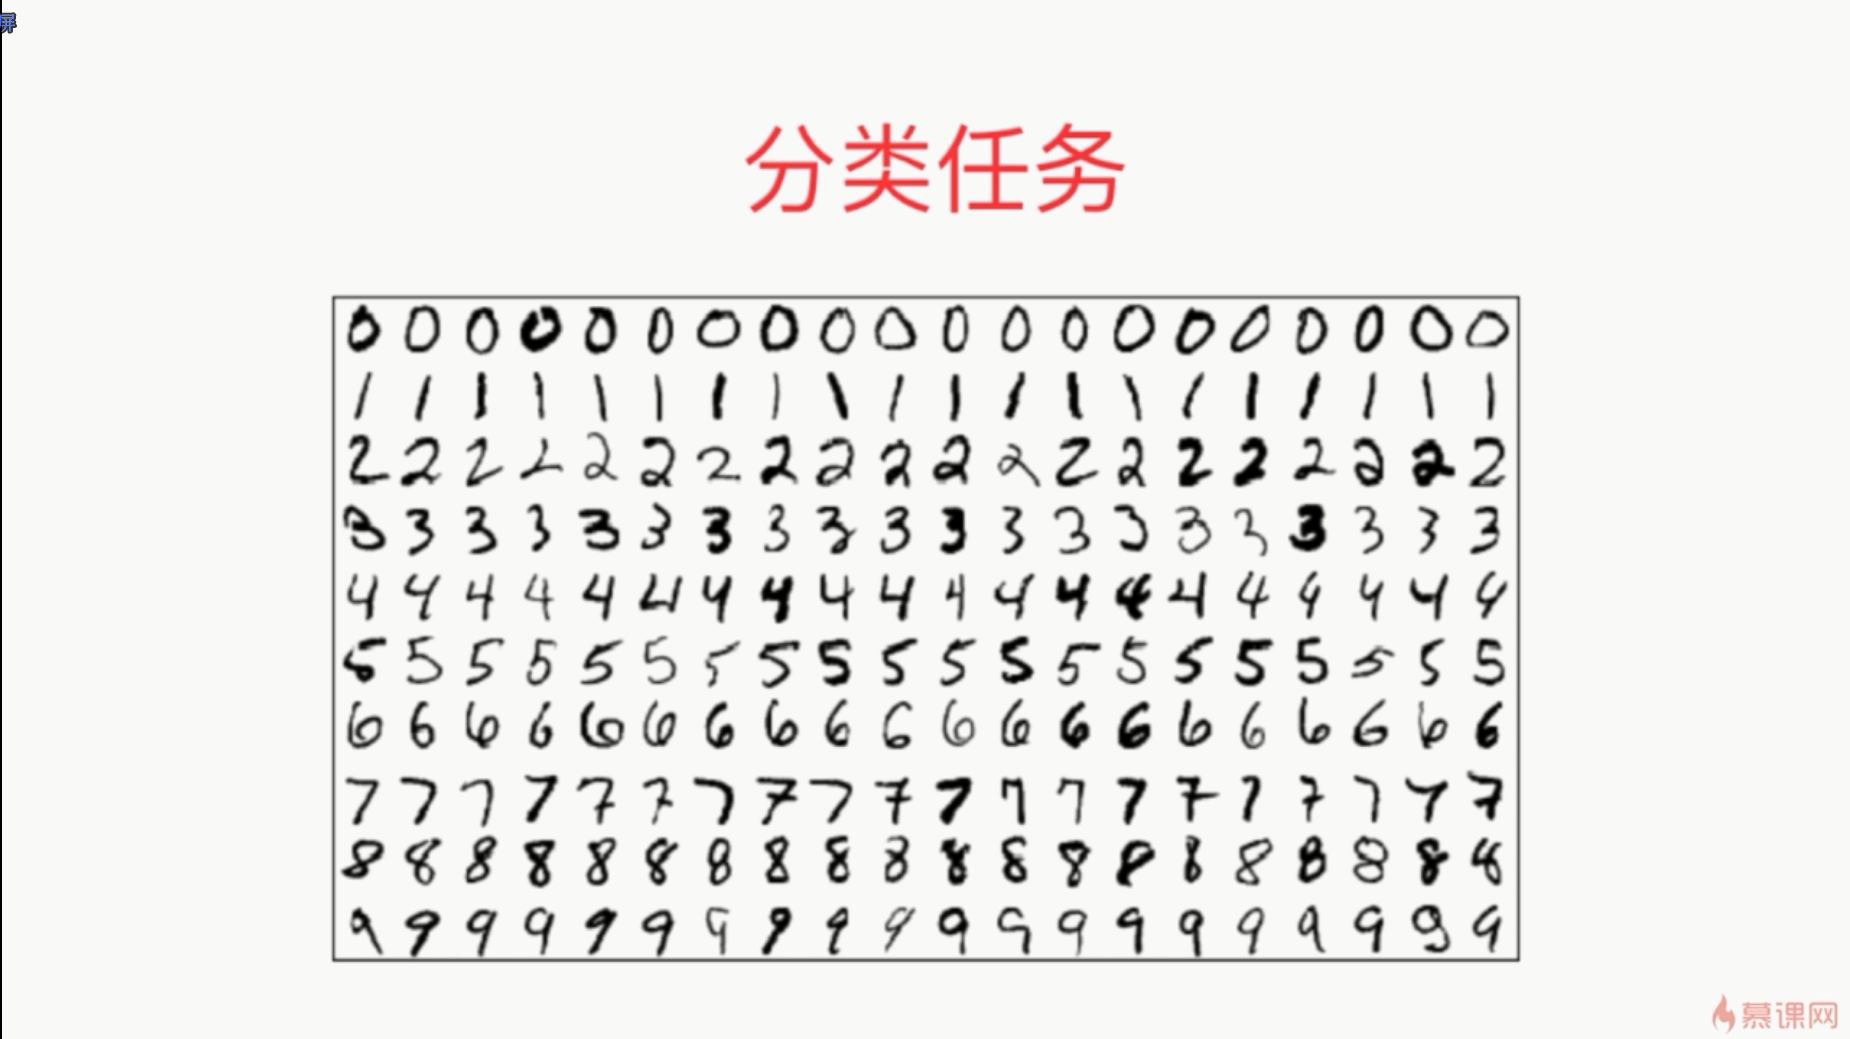 屏
分类任务
0 0 0 0 0 0 0 0 0 0 0 0 0 0 0 0 0 0 0 0
1 1 1 1 1 1 1 1 1 1 1 1 1 1 1 1 1 1 1 1
2 2 2 2 2 2 2 2 2 2 2 2 2 2 2 2 2 2 2 2
3 3 3 3 3 3 3 3 3 3 3 3 3 3 3 3 3 3 3 3
4 4 4 4 4 4 4 4 4 4 4 4 4 4 4 4 4 4 4 4
5 5 5 5 5 5 5 5 5 5 5 5 5 5 5 5 5 5 5 5
6 6 6 6 6 6 6 6 6 6 6 6 6 6 6 6 6 6 6 6
7 7 7 7 7 7 7 7 7 7 7 7 7 7 7 7 7 7 7 7
8 8 8 8 8 8 8 8 8 8 8 8 8 8 8 8 8 8 8 8
9 9 9 9 9 9 9 9 9 9 9 9 9 9 9 9 9 9 9 9
慕课网